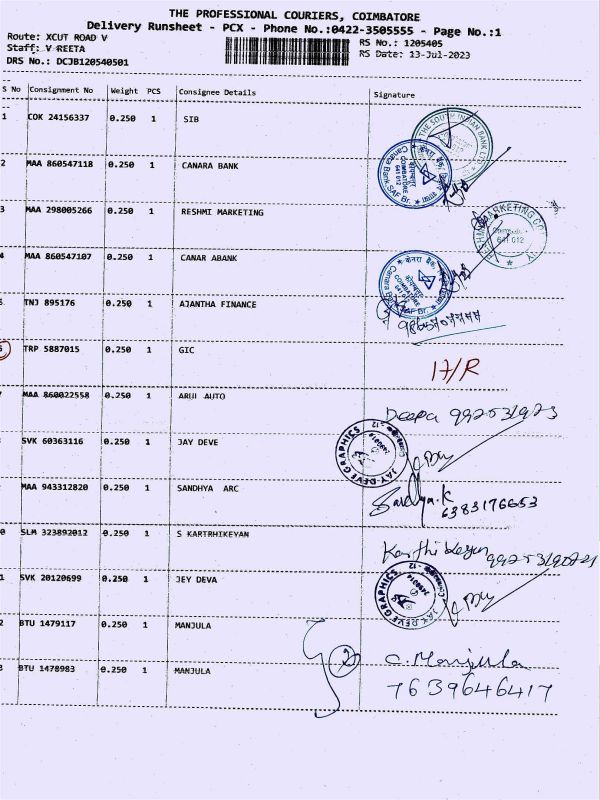 THE PROFESSIONAL COURIERS, COIMBATORE
Delivery Runsheet - PCX - Phone No.:0422-3505555 - Page No.:1
Route: XCUT ROAD V
RS No.: 1205405
Staff: V REETA
RS Date: 13-Jul-2023
DRS No.: DCJB120540501
S No Consignment No Weight PCS Consignee Details Signature
1 COK 24156337 0.250 1 SIB
2 MAA 860547118 0.250 1 CANARA BANK
3 MAA 298005266 0.250 1 RESHMI MARKETING
4 MAA 860547107 0.250 1 CANAR ABANK
TNJ 895176 0.250 1 AJANTHA FINANCE
TRP 5887015 0.250 1 GIC 17/R
MAA 860022558 0.250 1 ARUL AUTO Deepa
SVK 60363116 0.250 1 JAY DEVE JAY-DEVE GRAPHICS
MAA 943312820 0.250 1 SANDHYA ARC Sandhya.K 6383176653
0 SLM 323892012 0.250 1 S KARTRHIKEYAN Karthikeyan
1 SVK 20120699 0.250 1 JEY DEVA JAY-DEVE GRAPHICS
2 BTU 1479117 0.250 1 MANJULA 2 C. Manjula
3 BTU 1478983 0.250 1 MANJULA 7639646417